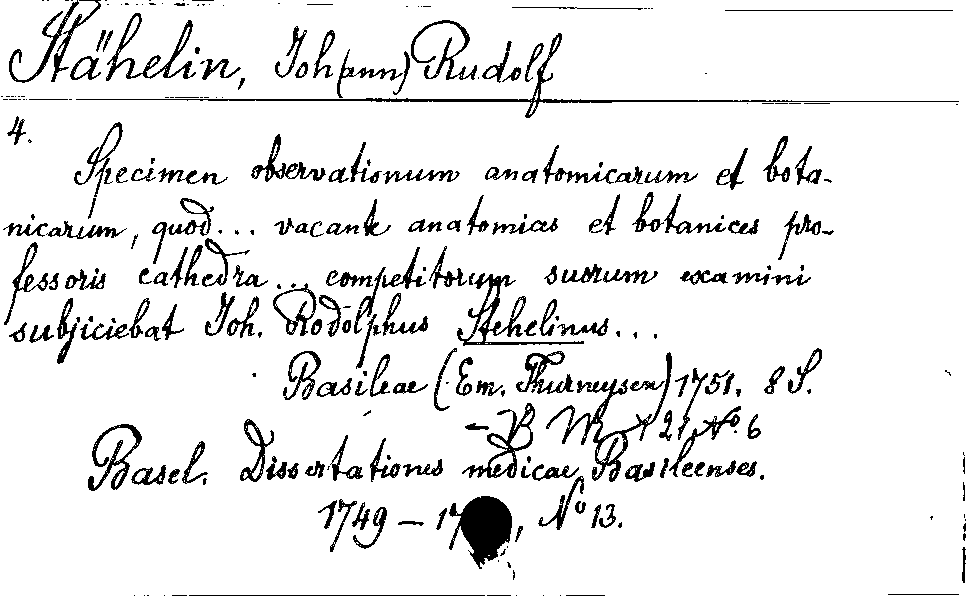 Stähelin, Joh(ann) Rudolf
4.
Specimen observationum anatomicarum et bota-
nicarum, quod... vacante anatomices et botanices pro-
fessoris cathedra... competitorum suorum examini
subjiciebat Joh. Rodolphus Stehelinus...
Basileae (Em. Thurneysen) 1751. 8 S.
- B M 21 No. 6
Basel. Dissertationes medicae Basileenses.
1749 - 17 , No 13.